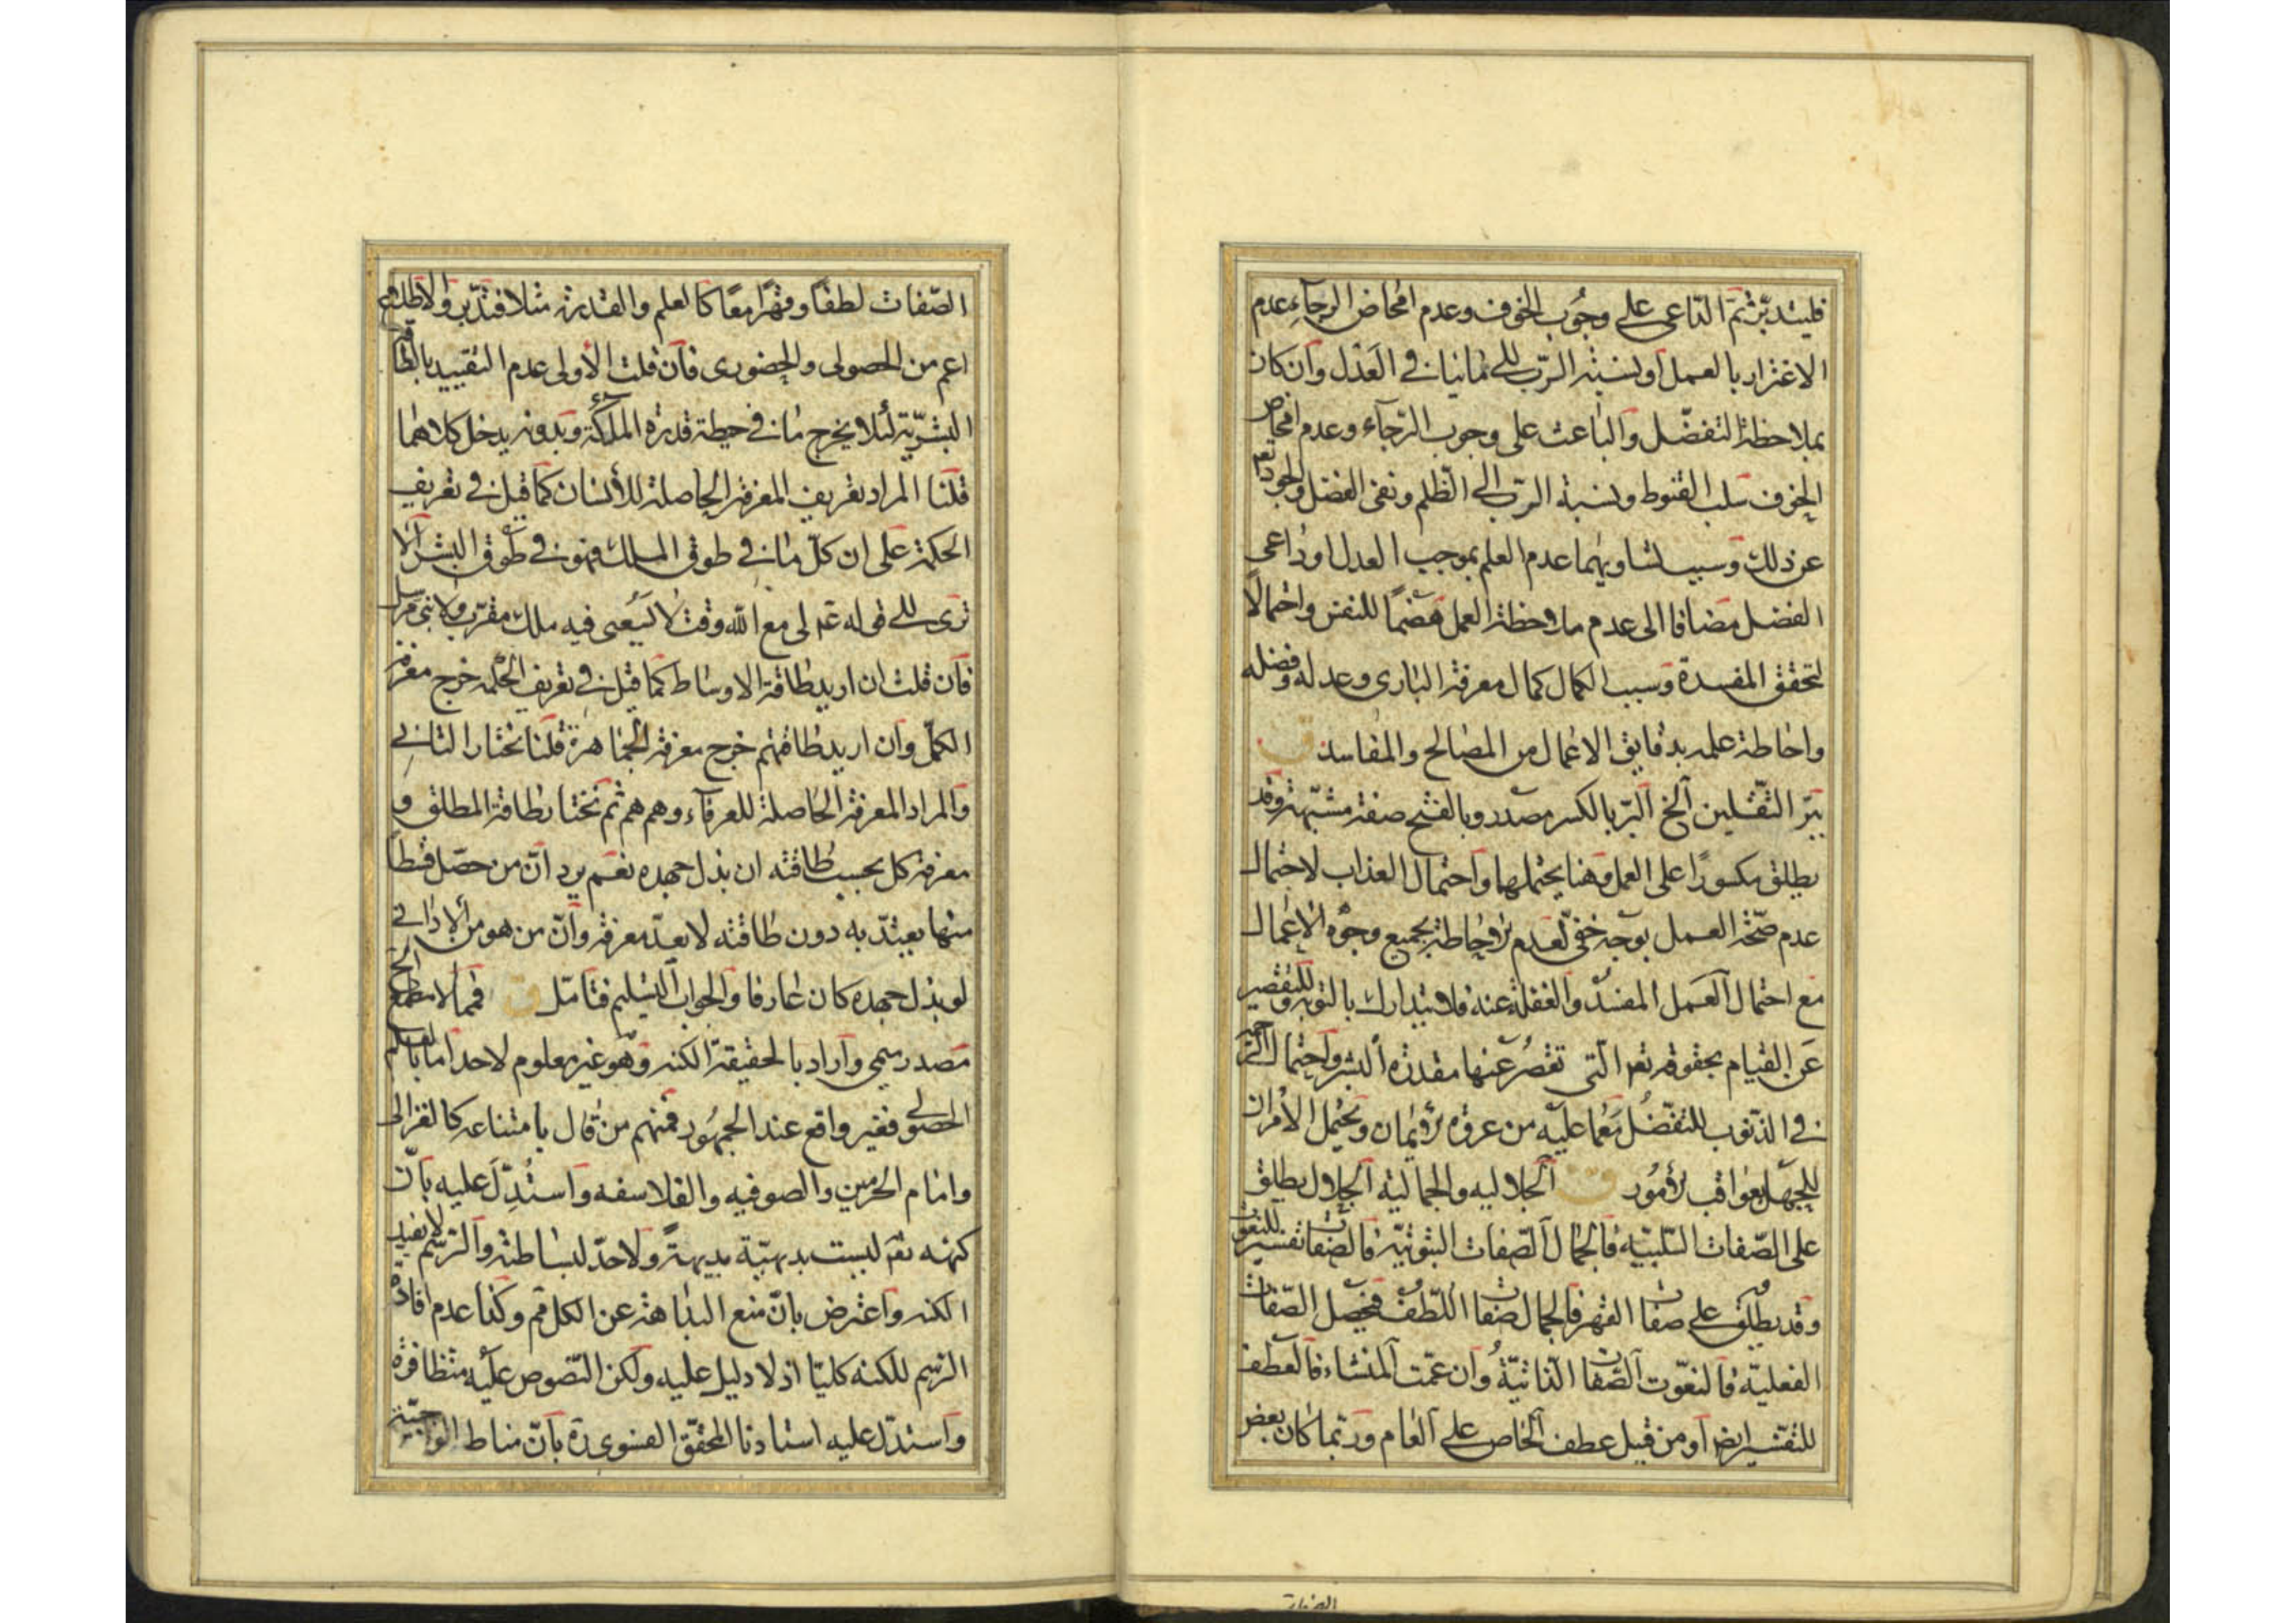 فليتدبّر ثمّ الدّاعى على وجُوب الخوف وعدم امحاض الرجآء عدم
الاغترار بالعمل أو لنسبة الرّب للى ما نيافى العَدْل وآن كان
بملاحظة التفضّل وآلباعث على وجوب الرّجآء وعدم امحاض
الخوف سلب القنوط ولنسبة الرّب الى الظّلم ونفى الفضل والجود تعم
عن ذلك وسبب لتساويهما عدم العلم بموجب العدل او داعى
الفضل مضافا الى عدم ملاحظة العمل هضمًا للنفس واحتمالًا
لتحقق المفسدة وسبب الكمال كمال معرفة البارى وعدله وفضله
واحاطة علمه بدقايق الاعمال من المصالح والمفاسد ق
ببّر الثّقلين آلخ آلبّر بالكسر مصدر وبالفتح صفة مشبّهة وقد
يطلق مكسورًا على العمل وهنا يحتملهما وآحتمال العذاب لاحتمال
عدم صحّة العمل بوجه خفىّ لعدم الاحاطة بجميع وجوه الاعمال
مع احتمال العمل المفسد والغفلة عنه فلا يتدارك بالتوبة وللتقصير
عَن القيام بحقوقه تعم الّتى تقصُر عنها مقدرة البشر وآحتمال الرّحمة
فى الذّنوب للتفضّل مَعْما عليه من عروة الايمان ويحتمل الأمران
للجهل بعواقب الأمُور ق آلجلاليه والجماليّة آلجلال يطلق
على الصّفات السّلبيّة فآلجمال آلصّفات الثبوتيّة فالصّفات تفسير للنعوت
وقد يطلق على صفات القهر فآلجمال صفات اللّطف فيخصل الصّفات
الفعليّة فآلنعوت آلصّفات الذّاتيّة وآن عمّت المنشاء فآلعطف
للتفسير ايضا آو من قبيل عطف آلخاص على آلعام وربّما كان بعض
الصّفات لطفًا وقهرًا معًا كالعلم والقدرة مثلا فتدبّر وآلاطلاع
اعم من الحصولى والحضورى فآن قلت الأولى عدم التقييد بالطّاقة
البشريّة لئلا يخرج ما فى حيطة قدرة الملئكة وبدونه يدخل كلاهما
قلنا المراد تعريف المعرفة الحاصلة للأنسان كما قيل فى تعريف
الحكمة على ان كلّ ما فى طوق الملك فهو فى طوق البشر آلا
ترى للى قوله عم لى مع اللّه وقت لا يَسَعنى فيه ملك مقرّب ولا نبىّ مرسل
فآن قلت ان اريد طاقة الاوساط كما قيل فى تعريف الحكمة خرج معرفة
الكمّل وآن اريد طاقتهم خرج معرفة الجماهرة قلنا نختار الثانى
وآلمراد المعرفة الحاصلة للعرفآء وهم هم ثمّ نختار طاقة المطلق و
معرفة كل بحسب طاقته ان بذل جهده نعم يرد انّ من حصّل قسطًا
منها يعتدّ به دون طاقته لا يعدّ معرفة وآنّ من هو من الادانى
لو بذل جهده كان عارفا وآلجواب آلتسليم فتأمّل ق فمما لا مطمع آلخ
مصدر ميمى وآراد بالحقيقة آلكنه وهو غير معلوم لاحد امّا بالعلم
الحصولى فغير واقع عند الجمهُور فمنهم من قال بامتناعه كالغزالى
وامام الحرمين والصوفيه والفلاسفه وآستُدِلّ عليه بآنّ
كنهه تعم ليست بديهيّة بديهةً ولا حدّ لبساطته وآلرّسم لا يفيد
الكنه وآعترض بانّ منع البداهة عن الكل قم وكذا عدم افادة
الرّسم للكنه كليّا اذ لا دليل عليه ولكن النّصوص عليه متظافرة
وآستدلّ عليه استادنا المحقّق الفسوى ره بآنّ مناط الواجبيّة